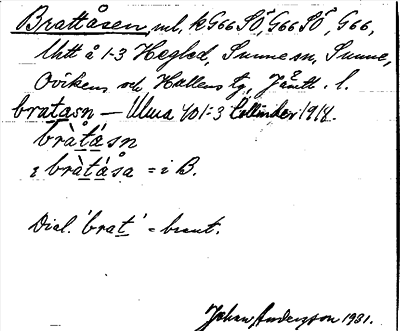 Brattåsen, ml, k G66 SÖ, G66 SÖ, G66,
Utt å 1-3 Hegled, Sunne sn, Sunne,
Ovikens och Hallens tg, Jämtl. l.
bratasn – Ulma 401:3 Collinder 1918.
bràtásn
i bràtåsa = i B.
Dial. 'brat' = brant.
Johan Anderzon 1931.